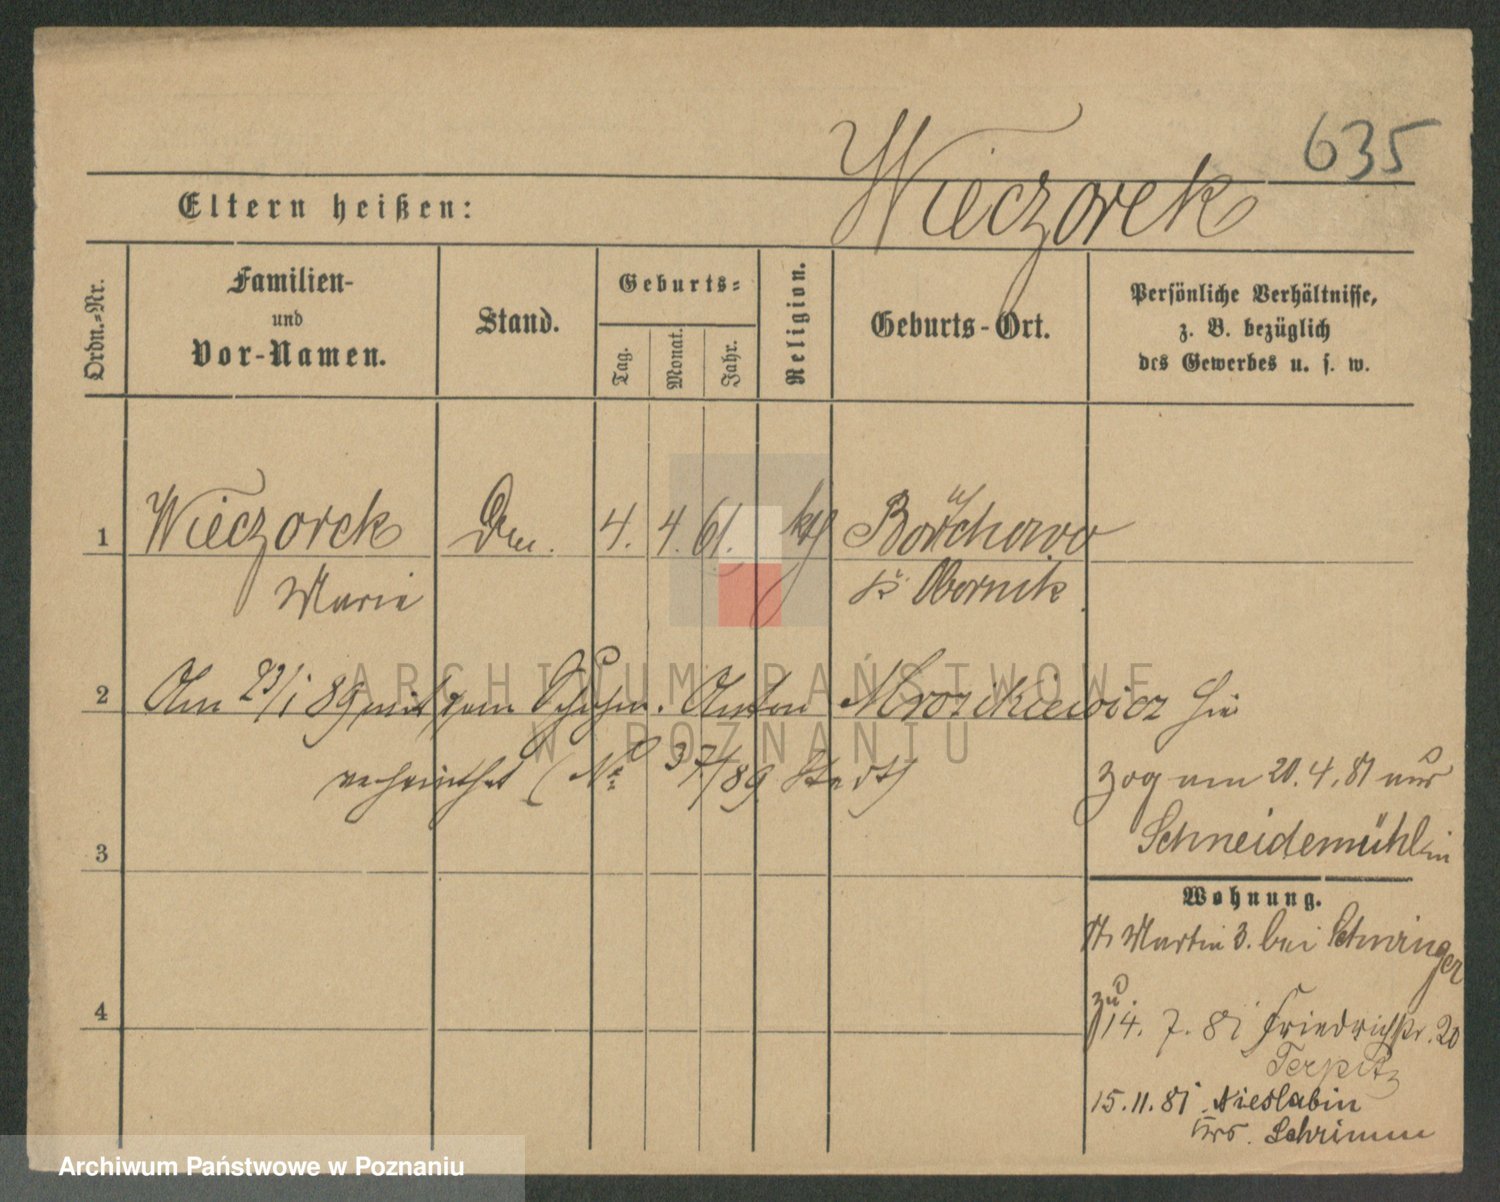 635
Wieczorek
Eltern heißen:
Ordn.-Nr.
Familien-
und
Vor-Namen.
Stand.
Geburts-
Tag.
Monat.
Jahr.
Religion.
Geburts-Ort.
Persönliche Verhältnisse,
z. B. bezüglich
des Gewerbes u. s. w.
1 Wieczorek 4. 4. 61. kth Boruchowo
Marie Obornik
2 Am 23/1 89 mit dem Schuhm. Anton Mrozikiewicz hier
verheirathet (No 37/89 Stadt)
zog am 20.4.81 aus
Schneidemühl ein
3
Wohnung.
St. Martin 3. bei
zu.
14. 7. 81 Friedrichstr. 20
Terpitz
4
15.11.81. Nieslabin
Krs. Schrimm
ARCHIWUM PAŃSTWOWE
W POZNANIU
Archiwum Państwowe w Poznaniu